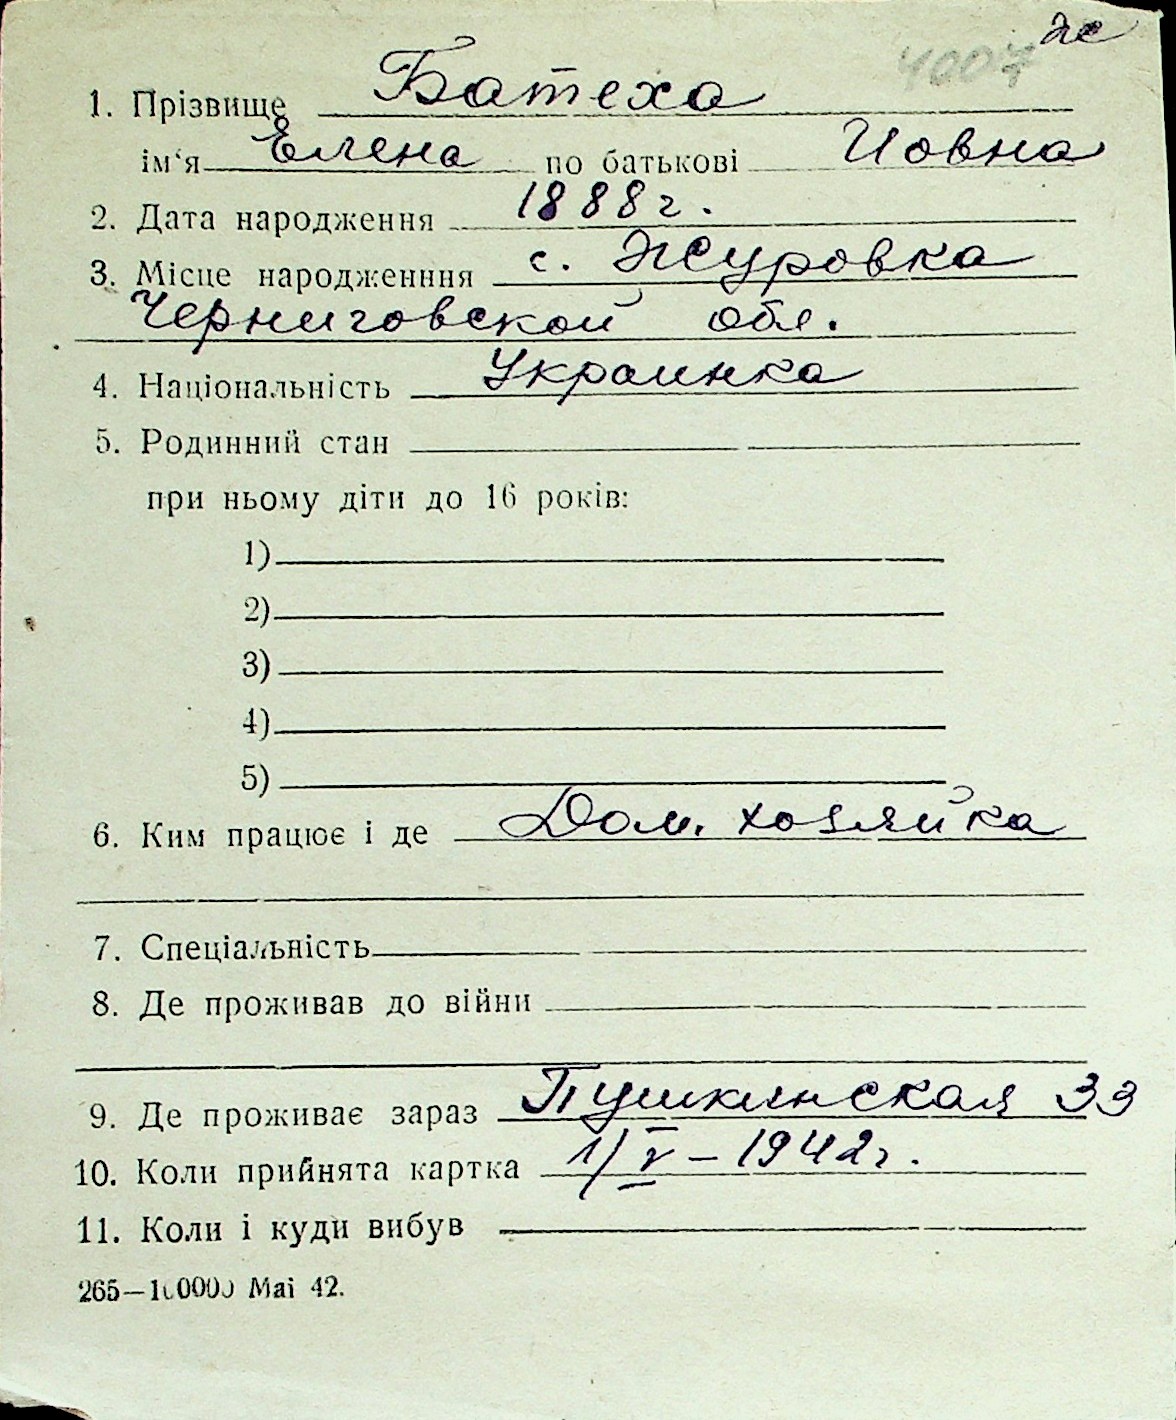 4007 же
1. Прізвище Батеха
ім‘я Елена по батькові Иовна
2. Дата народження 1888 г.
3. Місце народженння с. Журовка
Черниговской обл.
4. Національність Украинка
5. Родинний стан
при ньому діти до 16 років:
1)
2)
3)
4)
5)
6. Ким працює і де Дом. хозяйка
7. Спеціальність
8. Де проживав до війни
9. Де проживає зараз Пушкинская 33
10. Коли прийнята картка 1/V – 1942 г.
11. Коли і куди вибув
265—100000 Mai 42.